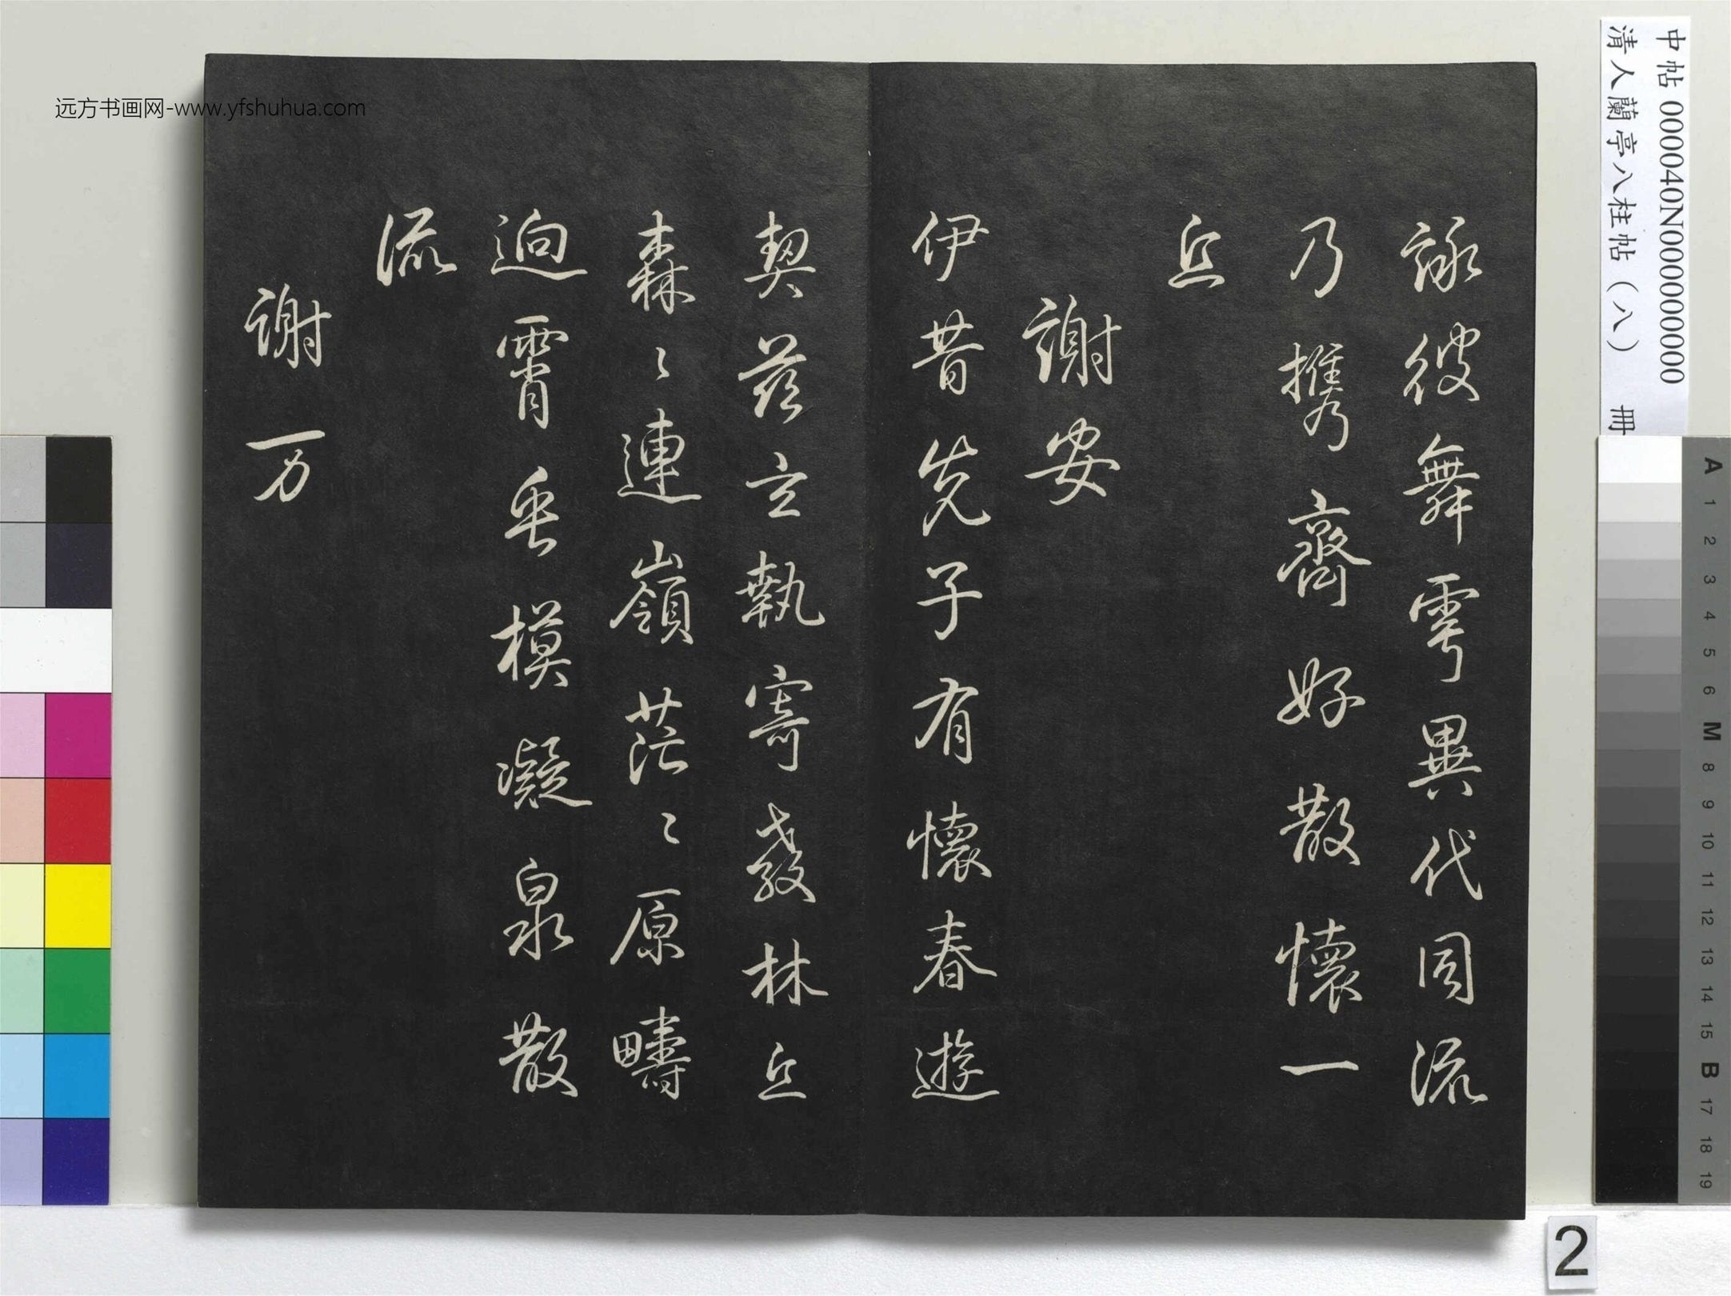 远方书画网-www.yfshuhua.com
中帖 000040N000000000
清人蘭亭八柱帖（八） 冊
詠彼舞雩異代同流
乃携齊好散懷一
丘
謝安
伊昔先子有懷春遊
契茲言執寄敖林丘
森〻連嶺茫〻原疇
迥霄垂模凝泉散
流
謝万
A 1 2 3 4 5 6 M 8 9 10 11 12 13 14 15 B 17 18 19
2